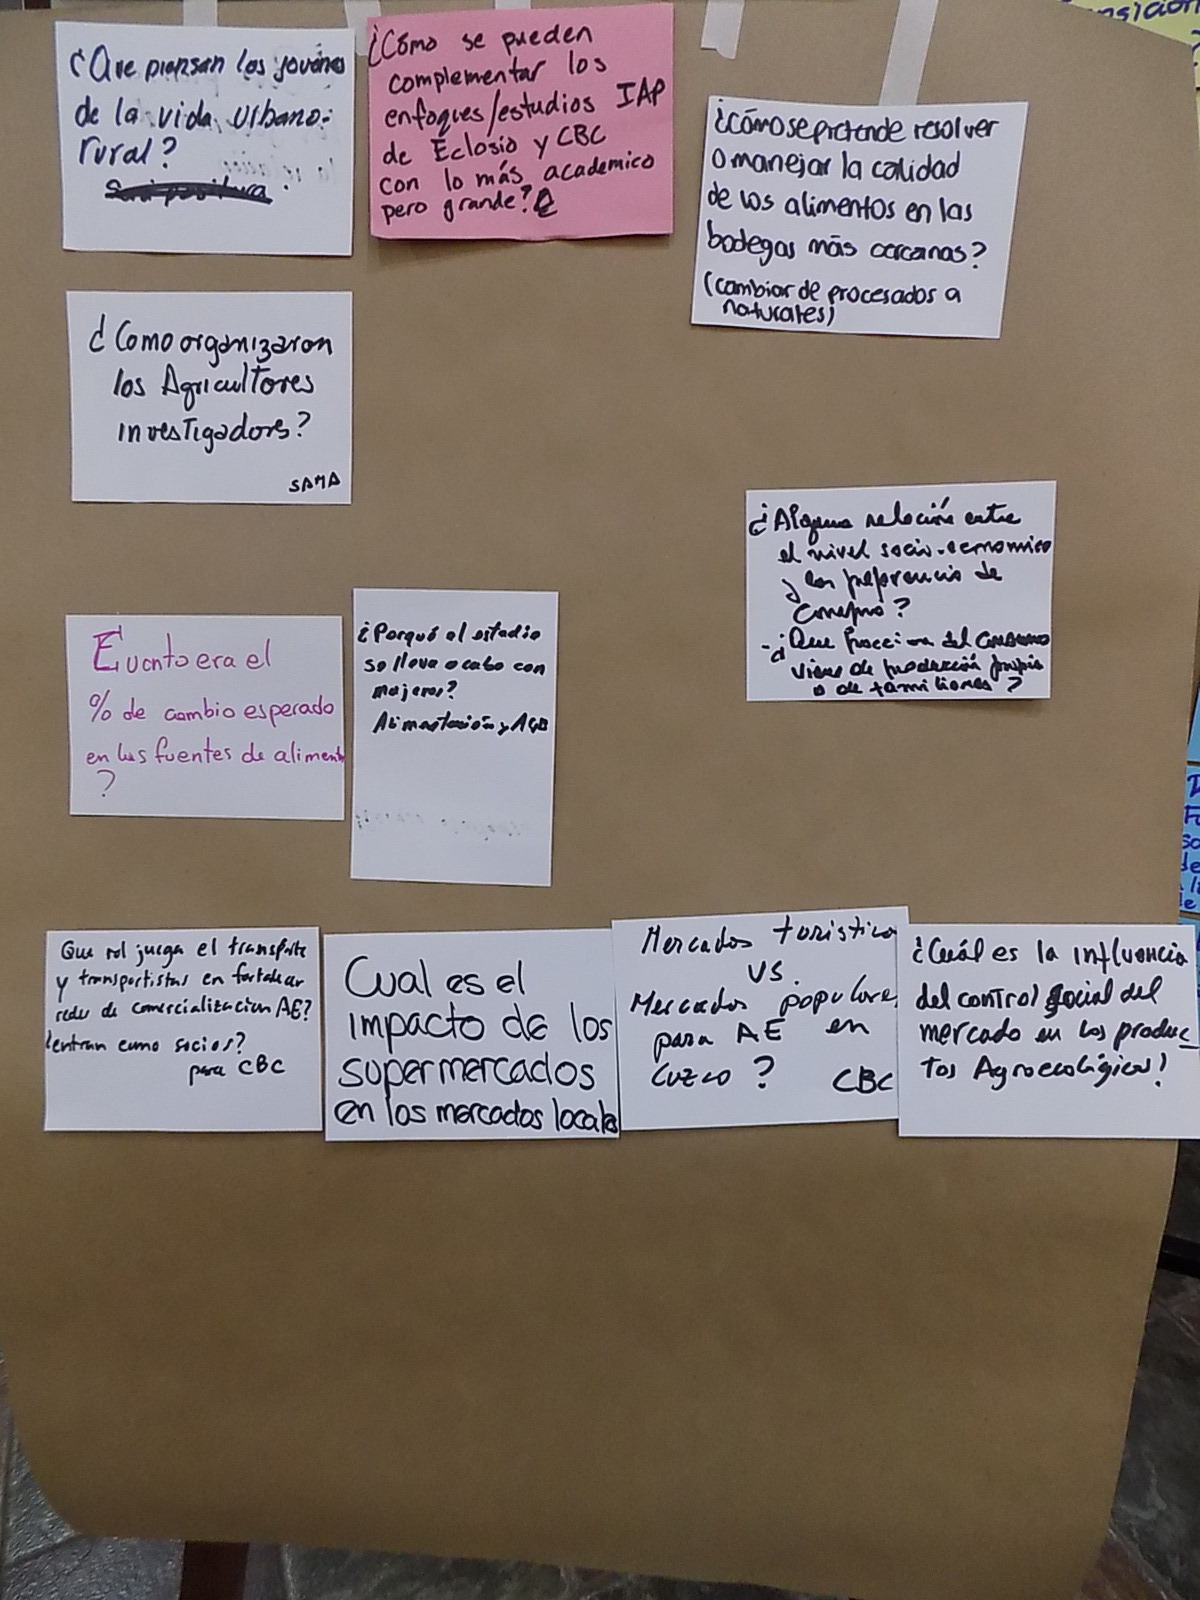 ¿Que piensan los jovenes
de la vida urbano-
rural?
¿Cómo se pueden
complementar los
enfoques/estudios IAP
de Eclosio y CBC
con lo más academico
pero grande?
¿cómo se pretende resolver
o manejar la calidad
de los alimentos en las
bodegas más cercanas?
(cambiar de procesados a
naturales)
¿Como organizaron
los Agricultores
investigadores?
SAMA
¿Alguna relación entre
el nivel socio-economico
y las preferencia de
consumo?
- ¿Que fraccion del consumo
viene de producción propia
o de familiares?
Cuanto era el
% de cambio esperado
en las fuentes de alimento
?
¿Porqué el estudio
se lleva a cabo con
mujeres?
Alimentación y AGB
Que rol juega el transporte
y transportistas en fortalecer
redes de comercialización AE?
¿entran como socios?
para CBC
Cual es el
impacto de los
supermercados
en los mercados locales
Mercados turistico
VS.
Mercados populares
para AE en
Cuzco?
CBC
¿Cuál es la influencia
del control social del
mercado en los produc-
tos Agroecológicos?